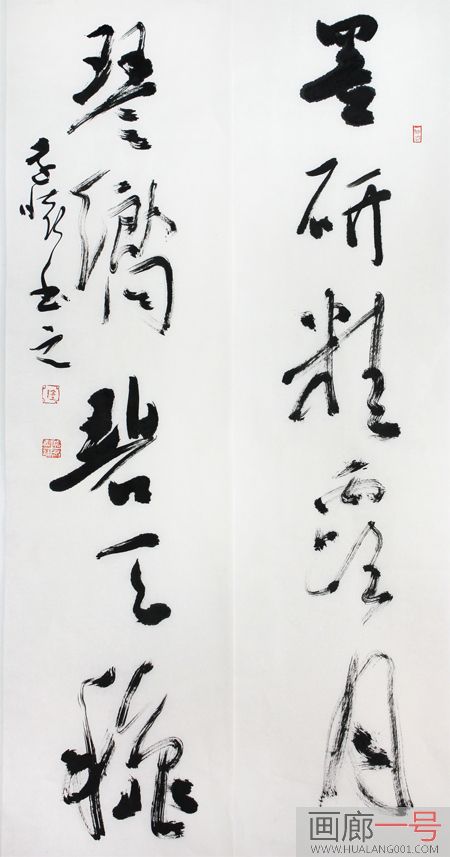 墨研露月
琴響碧天秋
懷書之
画廊一号
WWW.HUALANG001.COM